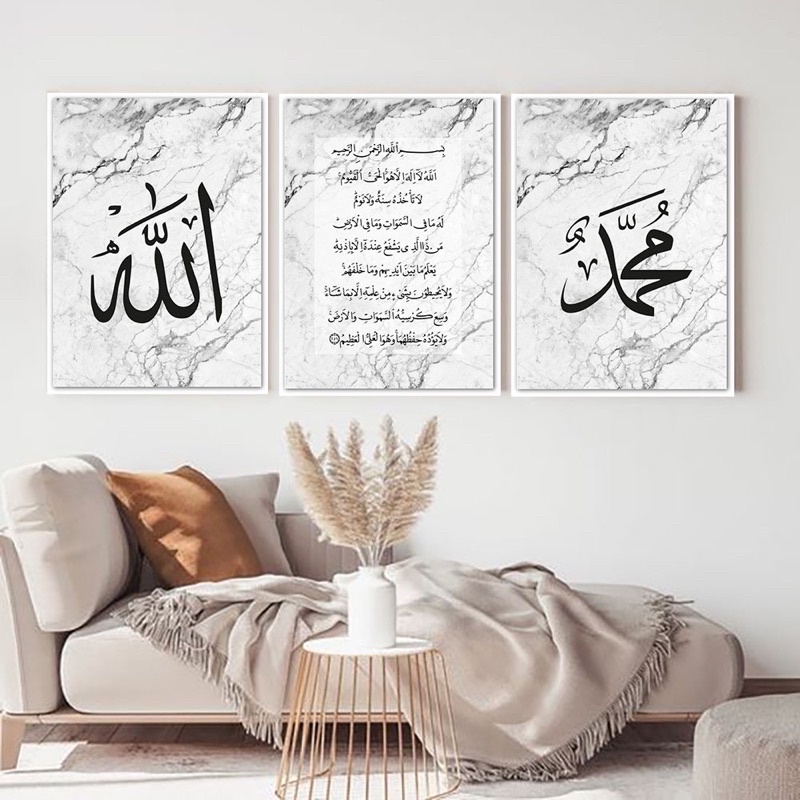 الله
بِسْمِ اللهِ الرَّحْمٰنِ الرَّحِيْمِ
اَللهُ لَآ اِلٰهَ اِلَّا هُوَ اَلْحَيُّ الْقَيُّوْمُ
لَا تَأْخُذُهٗ سِنَةٌ وَّلَا نَوْمٌ
لَهٗ مَا فِى السَّمٰوَاتِ وَمَا فِى الْاَرْضِ
مَنْ ذَا الَّذِىْ يَشْفَعُ عِنْدَهٗٓ اِلَّا بِاِذْنِهٖ
يَعْلَمُ مَا بَيْنَ اَيْدِيْهِمْ وَمَا خَلْفَهُمْ
وَلَا يُحِيْطُوْنَ بِشَىْءٍ مِّنْ عِلْمِهٖٓ اِلَّا بِمَا شَآءَ
وَسِعَ كُرْسِيُّهُ السَّمٰوَاتِ وَالْاَرْضَ
وَلَا يَئُوْدُهٗ حِفْظُهُمَا وَهُوَ الْعَلِىُّ الْعَظِيْمُ
مُحَمَّد